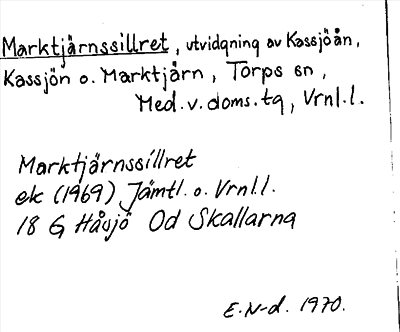 Marktjärnssillret, utvidgning av Kassjöån,
Kassjön o. Marktjärn, Torps sn,
Med.v.doms.tg, Vrnl.l.
Marktjärnssillret
ek (1969) Jämtl. o. Vrnl.l.
18 G Håsjö Od Skallarna
E.N-d. 1970.